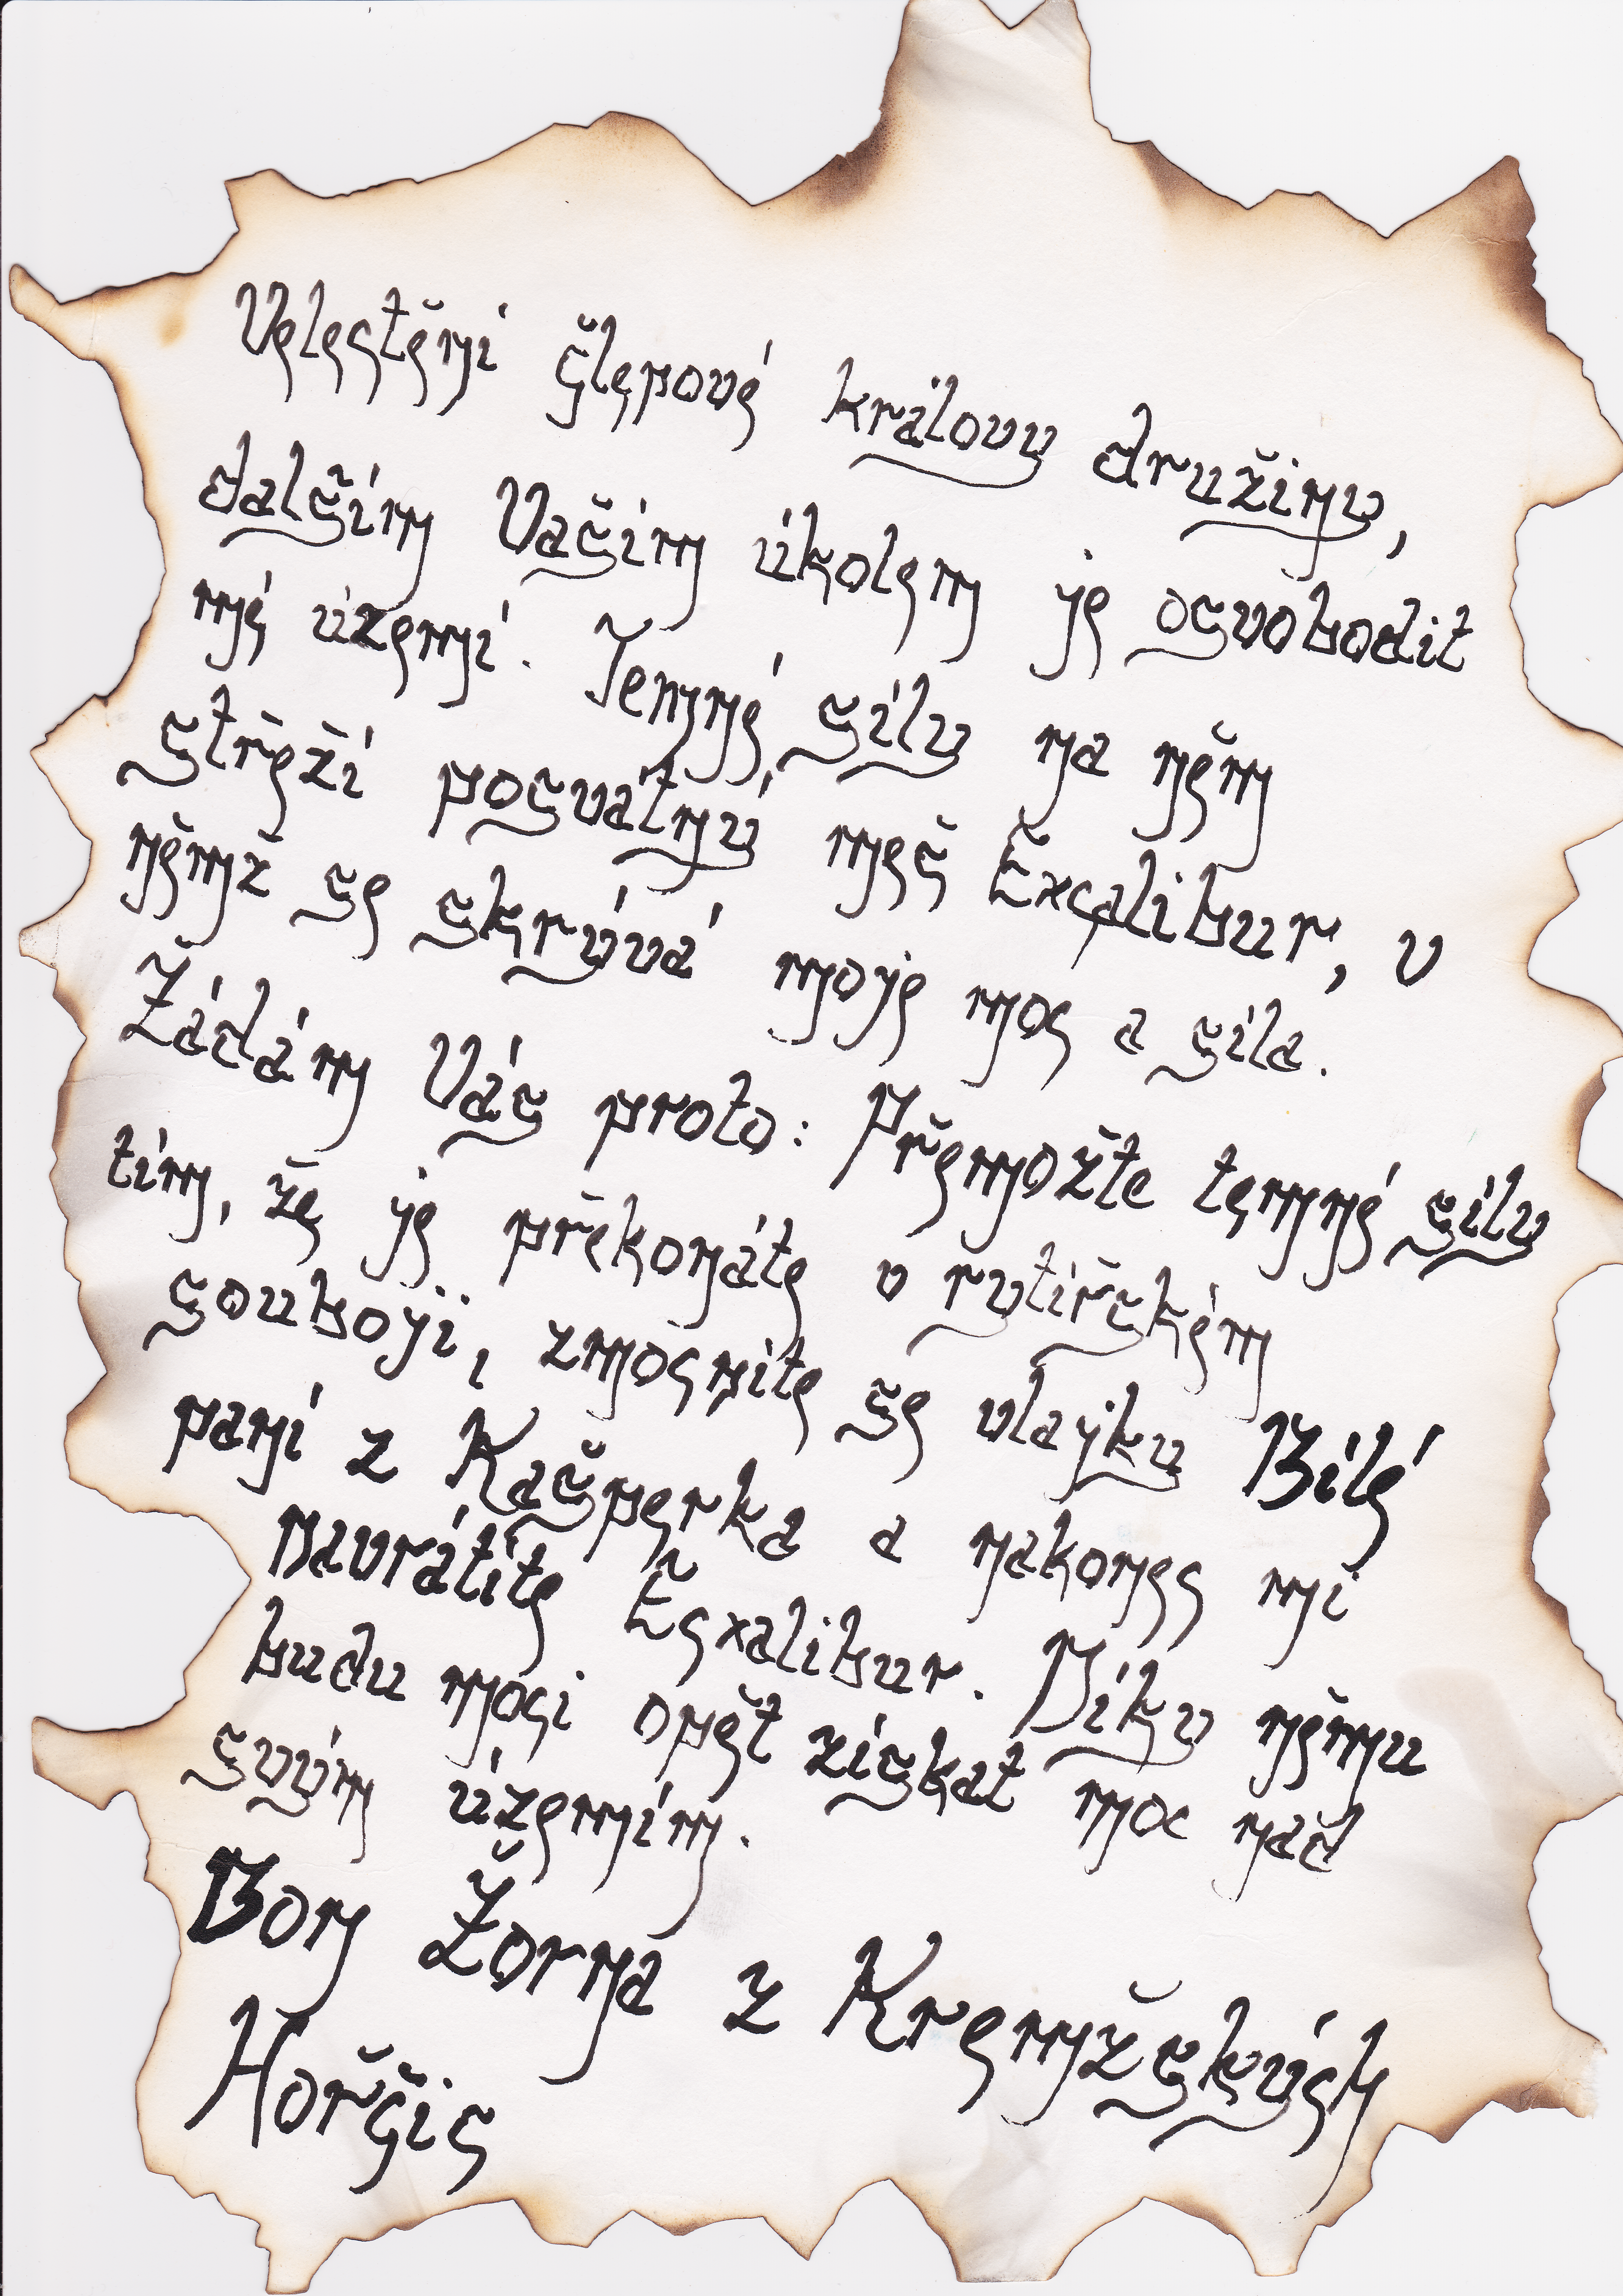 Velectění členové královy družiny,
dalším Vaším úkolem je osvobodit
mé území. Temné síly na něm
střeží posvátný meč Excalibur, v
němž se skrývá moje moc a síla.
Žádám Vás proto: Přemožte temné síly
tím, že je překonáte v rytířském
souboji, zmocníte se vlajky Bílé
paní z Kašperka a nakonec mi
navrátíte Ecxalibur. Díky němu
budu moci opět získat moc nad
svým územím.
Don Žorna z Kremžských
Hořčic